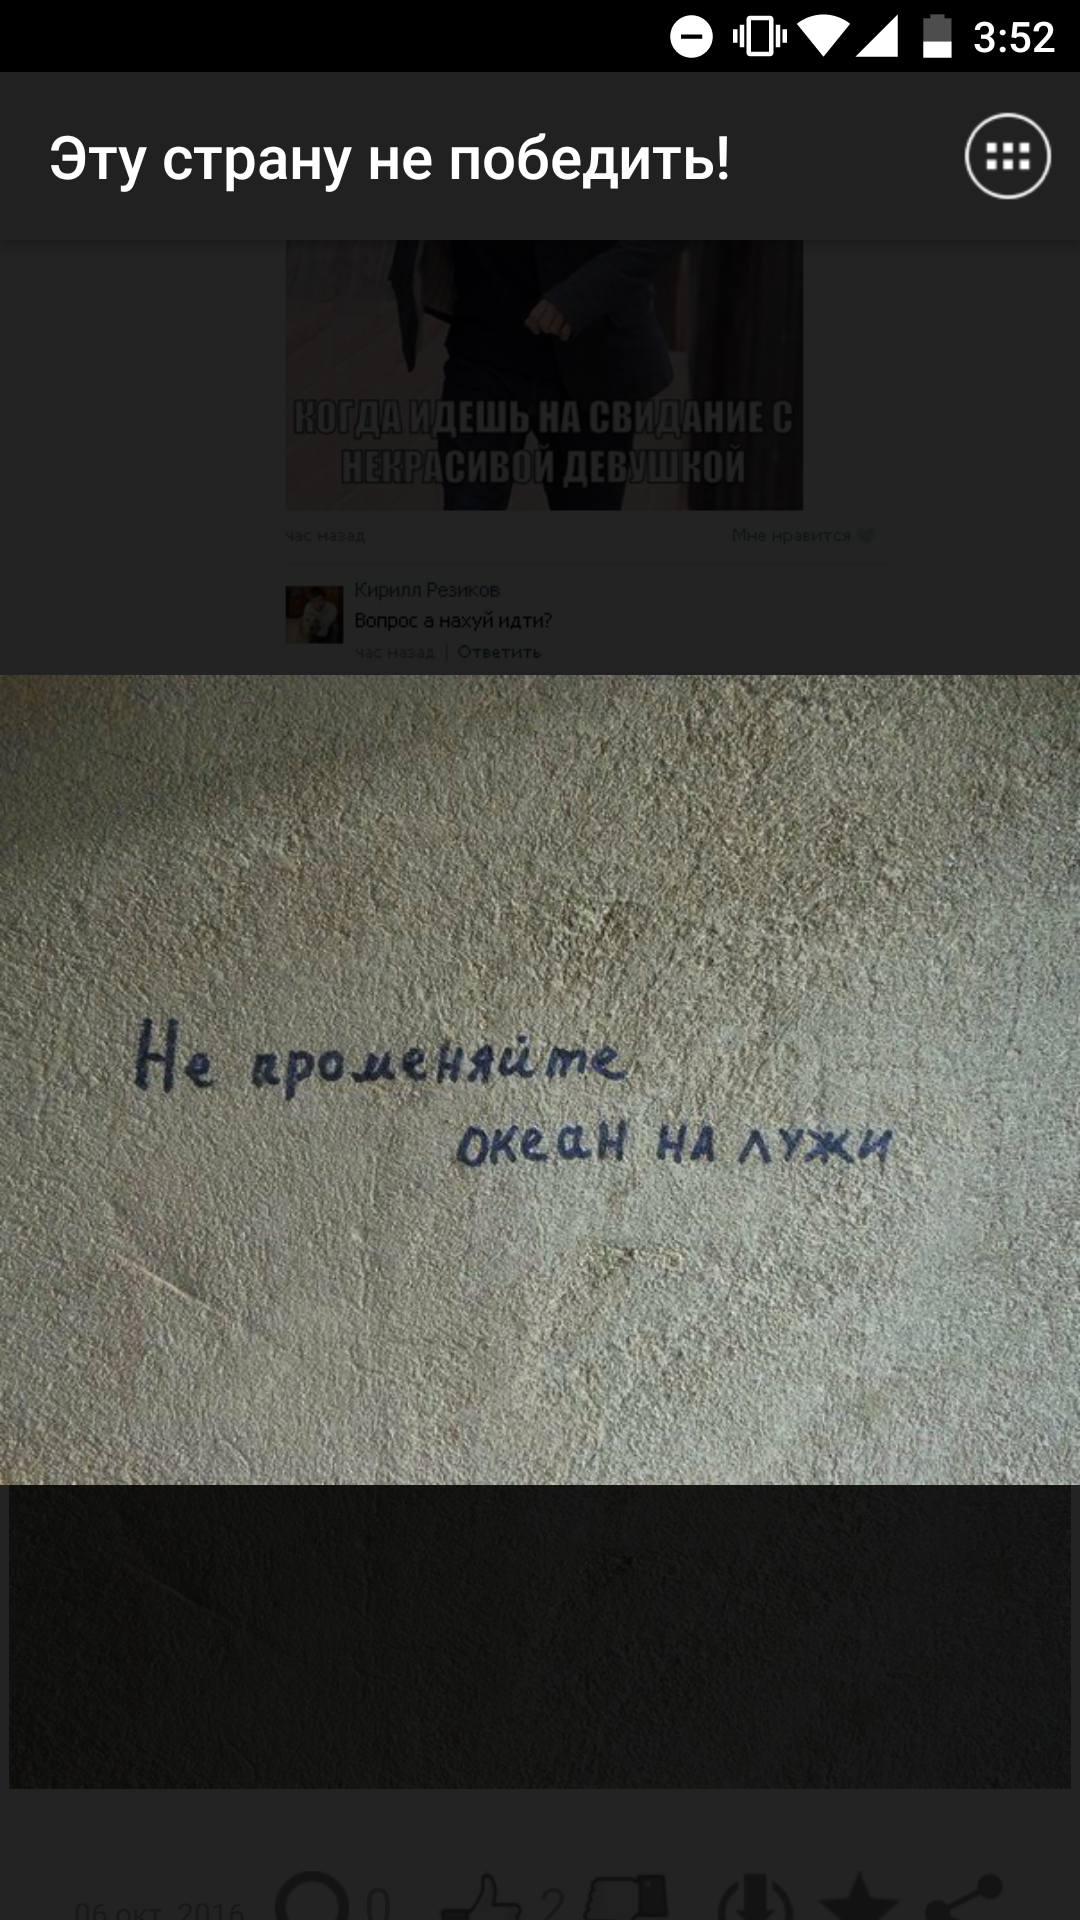 3:52
Эту страну не победить!
КОГДА ИДЕШЬ НА СВИДАНИЕ С
НЕКРАСИВОЙ ДЕВУШКОЙ
час назад
Мне нравится
Кирилл Резиков
Вопрос а нахуй идти?
час назад | Ответить
Не променяйте
океан на лужи
06 окт. 2016
0
2